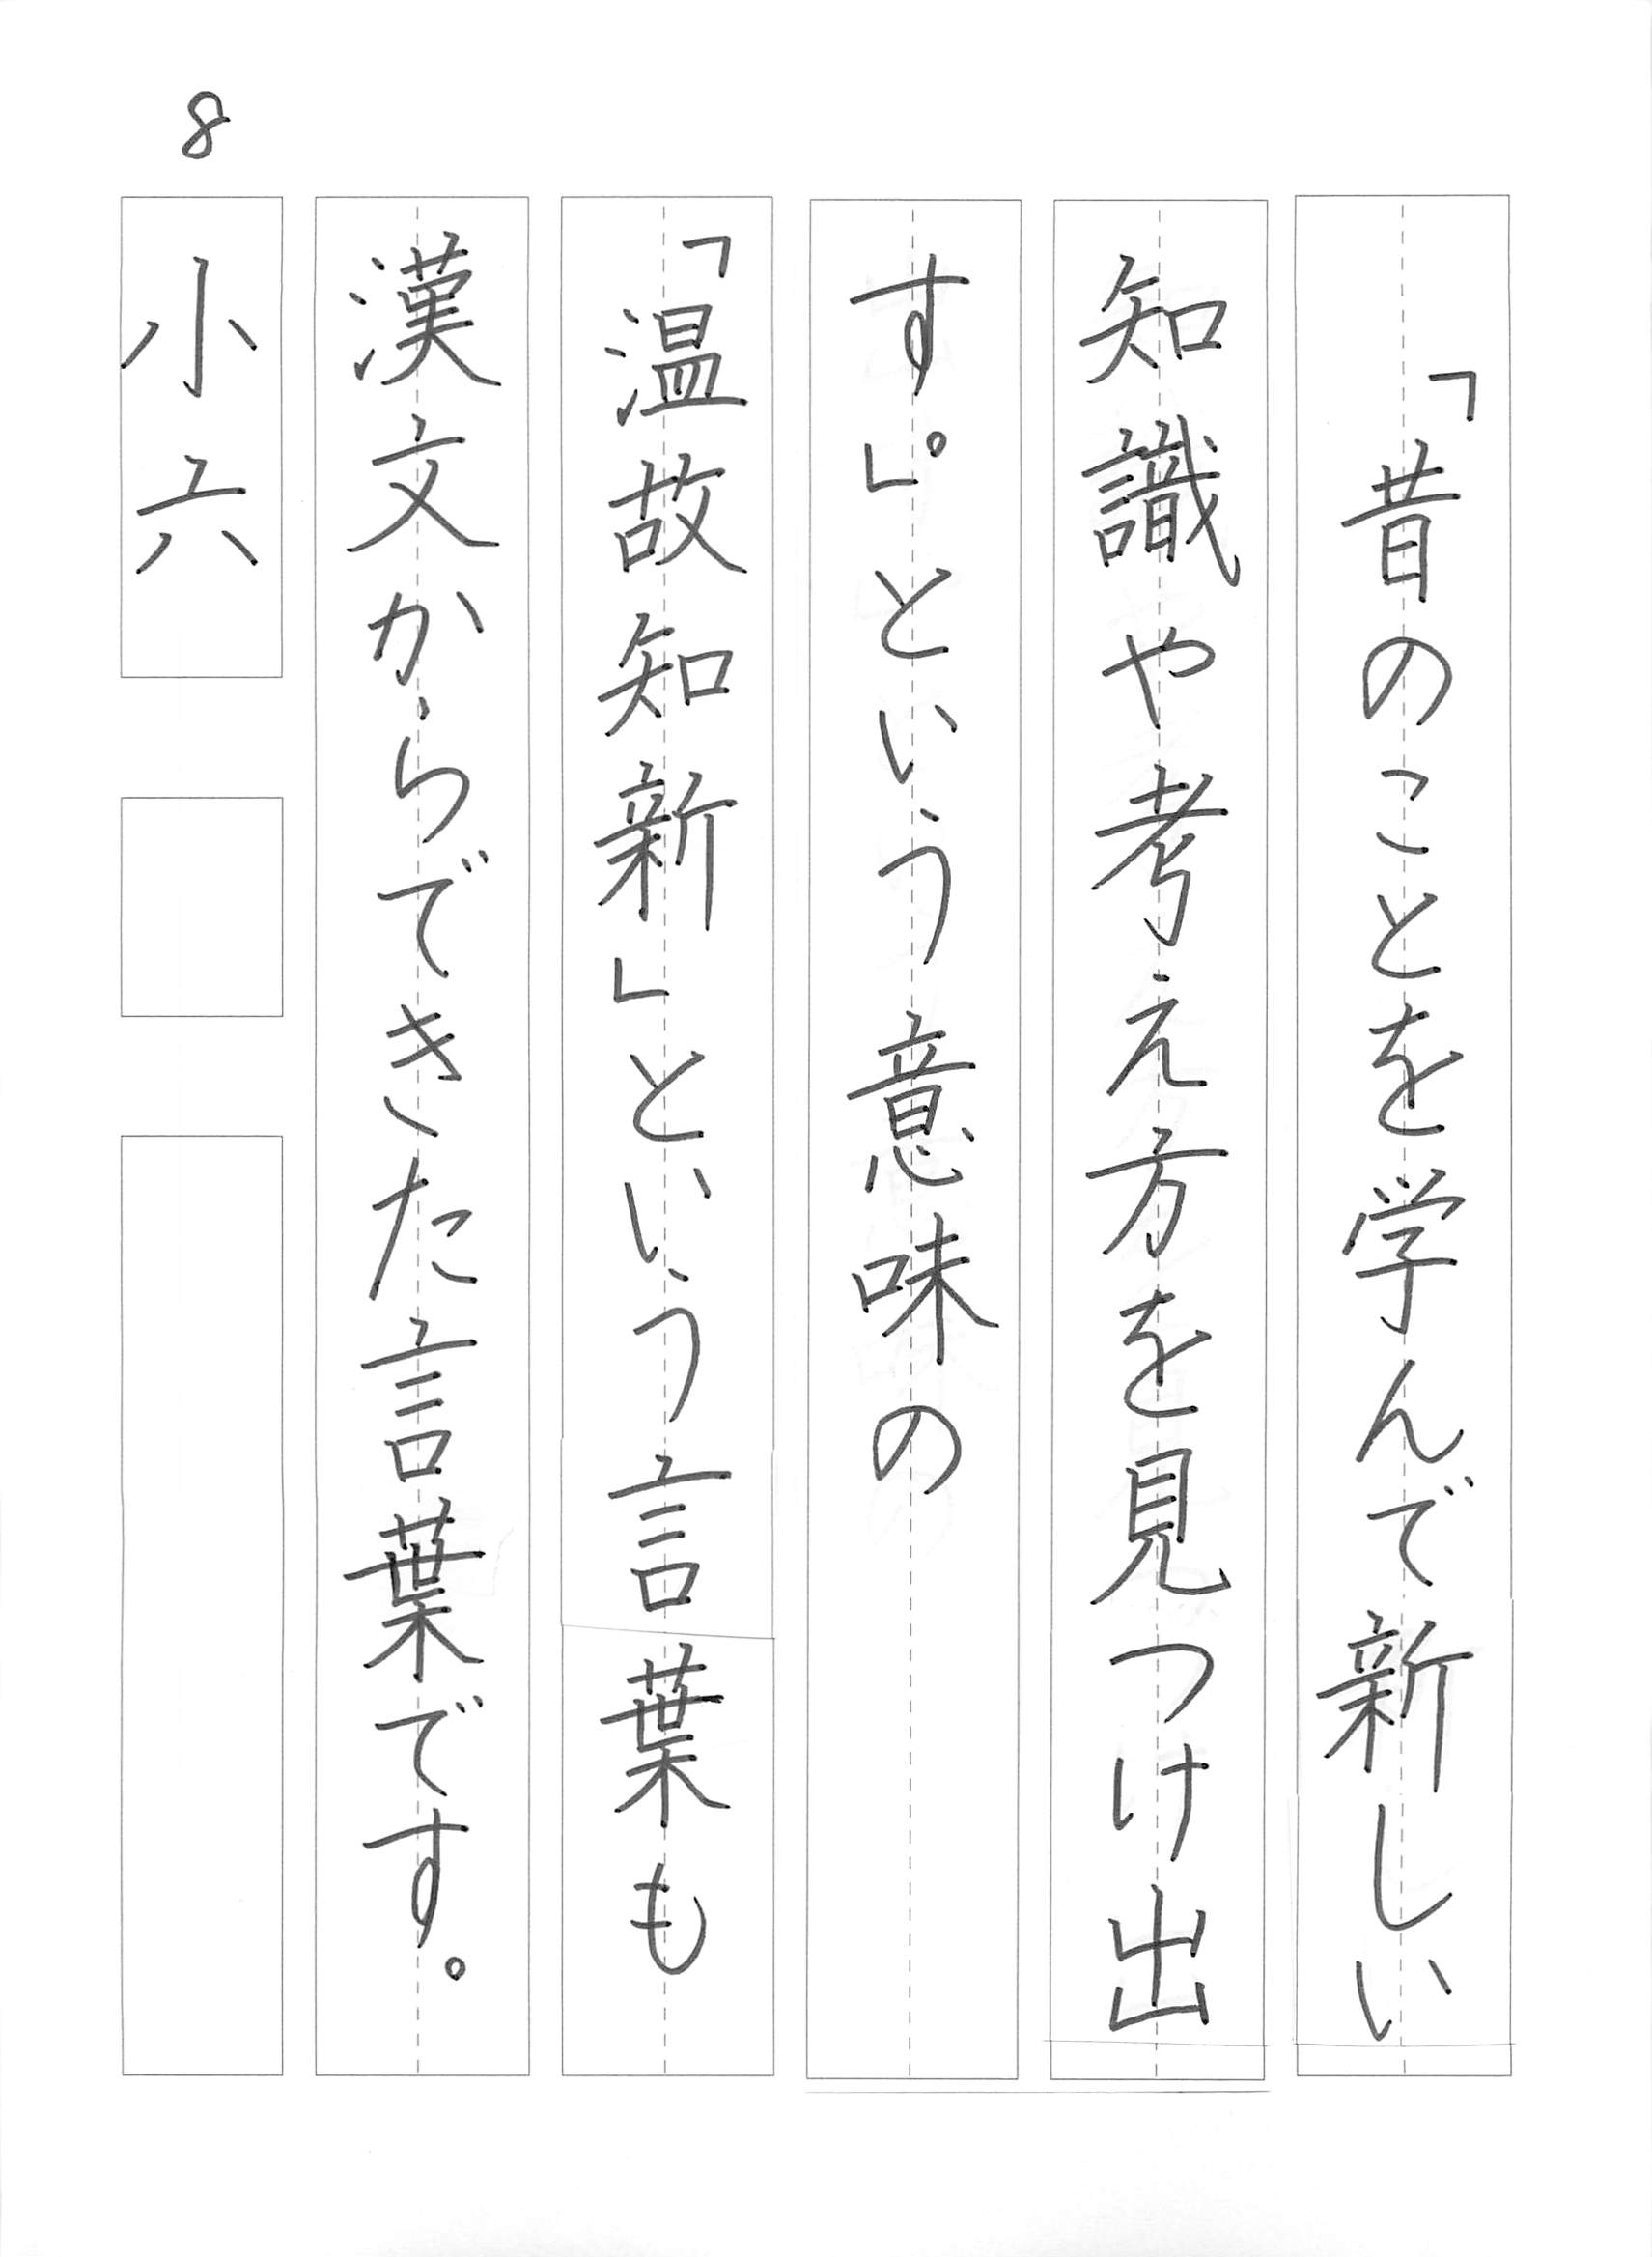 「昔のことを学んで新しい
知識や考え方を見つけ出
す。」という意味の
「温故知新」という言葉も
漢文からできた言葉です。
小六
8